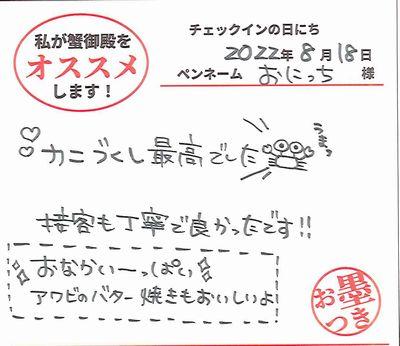 私が蟹御殿を
オススメ
します！
チェックインの日にち
2022年8月18日
ペンネーム おにっち 様
カニづくし最高でした
うまっ
接客も丁寧で良かったです!!
おなかい一っぱい
アワビのバター焼きもおいしいよ
お墨つき